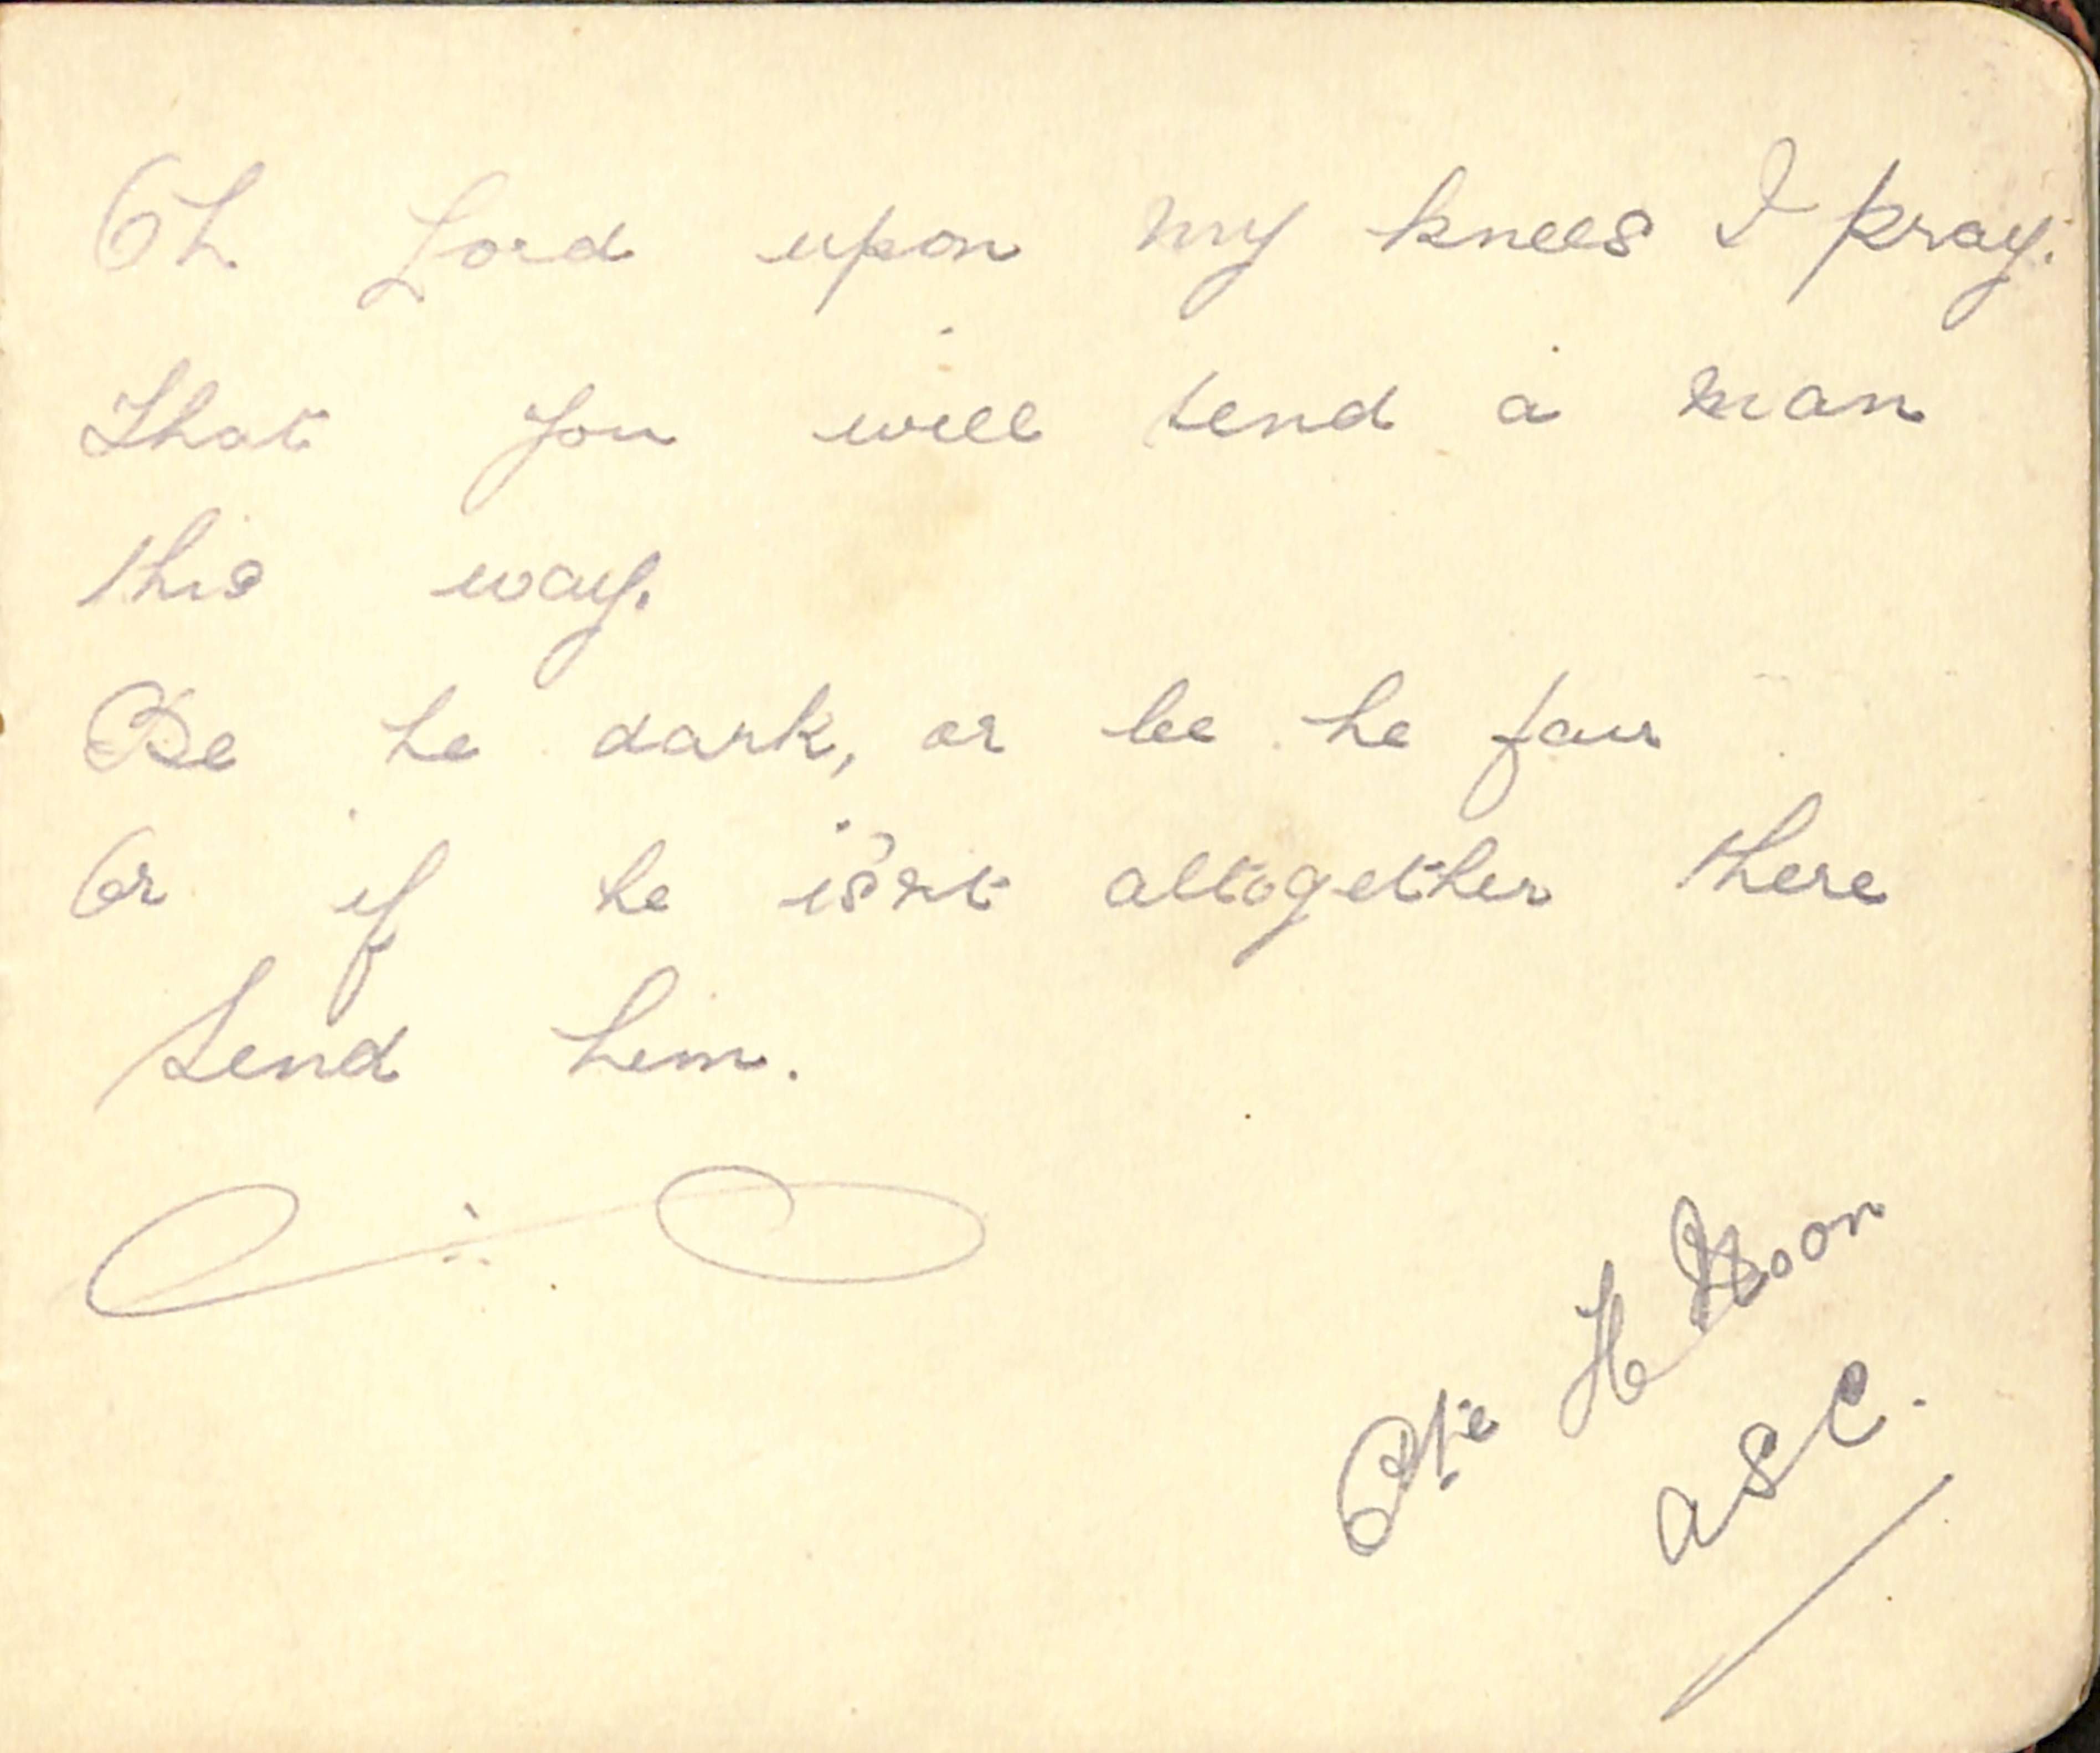 Oh Lord upon my knees I pray.
That you will send a man
this way.
Be he dark, or be he fair
Or if he is'nt altogether there
Send him.
Pte H Moon
ASC.